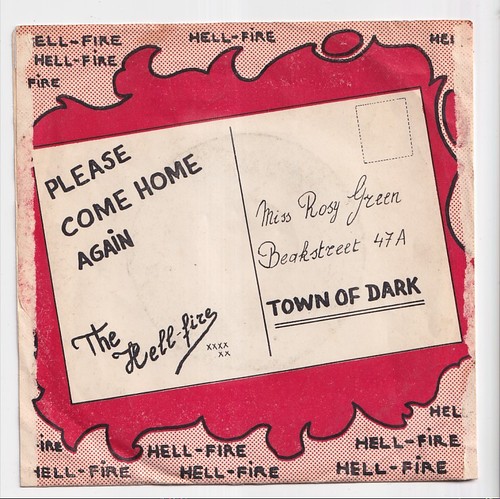 ELL-FIRE
HELL-FIRE
HEL
HELL-FIRE
FIRE
PLEASE
COME HOME
AGAIN
The
Hell-fire
xxxx
xx
Miss Rosy Green
Beakstreet 47A
TOWN OF DARK
HEL
IRE
HELL-FIRE
HELL-FIRE
HELL-FIRE
HELL-FIRE
HELL-FIRE